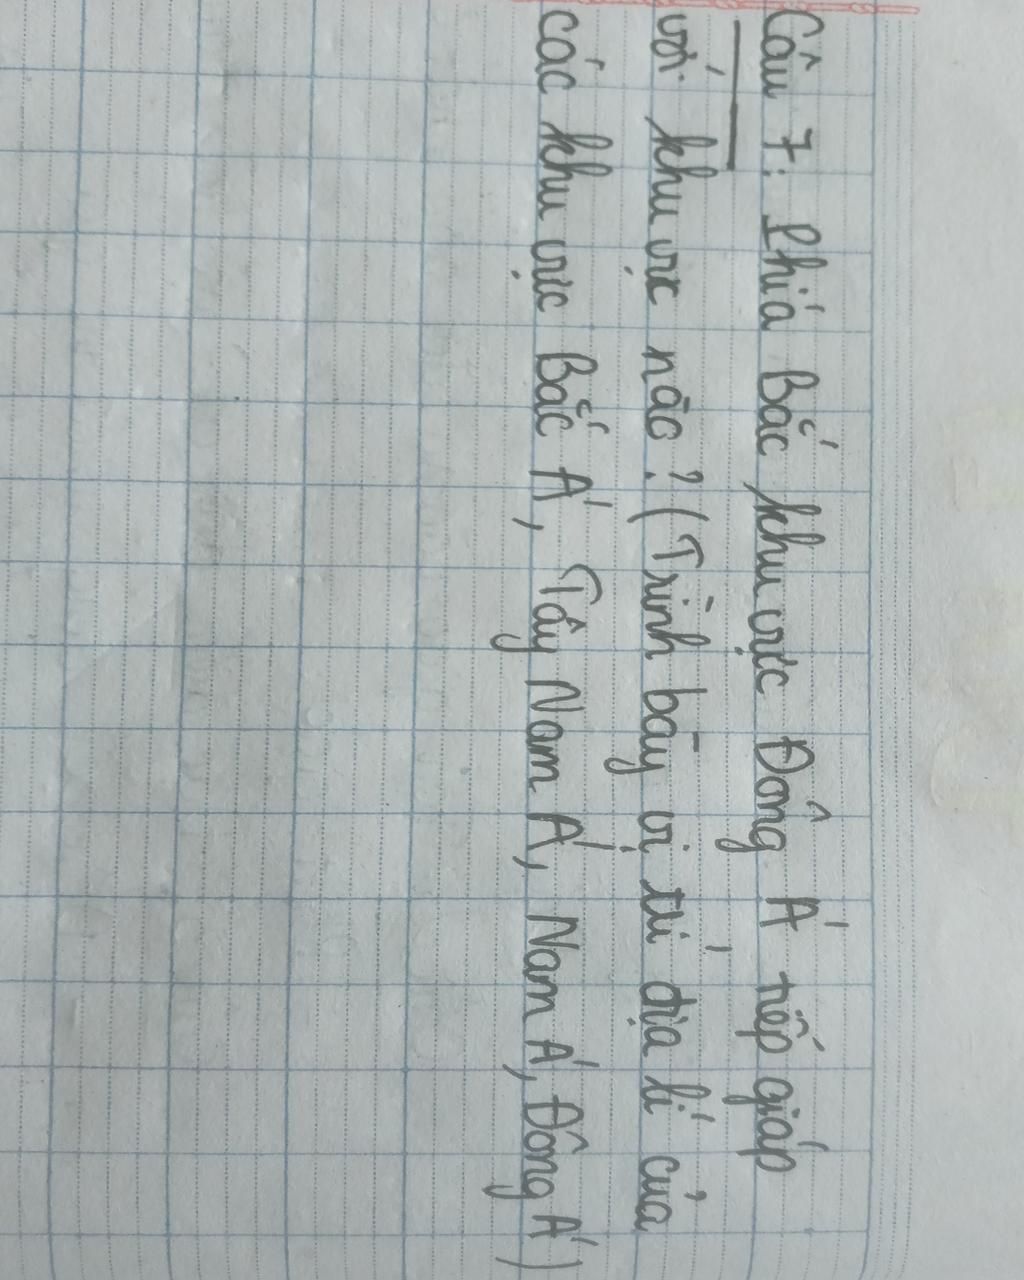 Câu 7: Phía Bắc khu vực Đông Á tiếp giáp
với khu vực nào? (Trình bày vị trí địa lí của
các khu vực Bắc Á, Tây Nam Á, Nam Á, Đông Á)